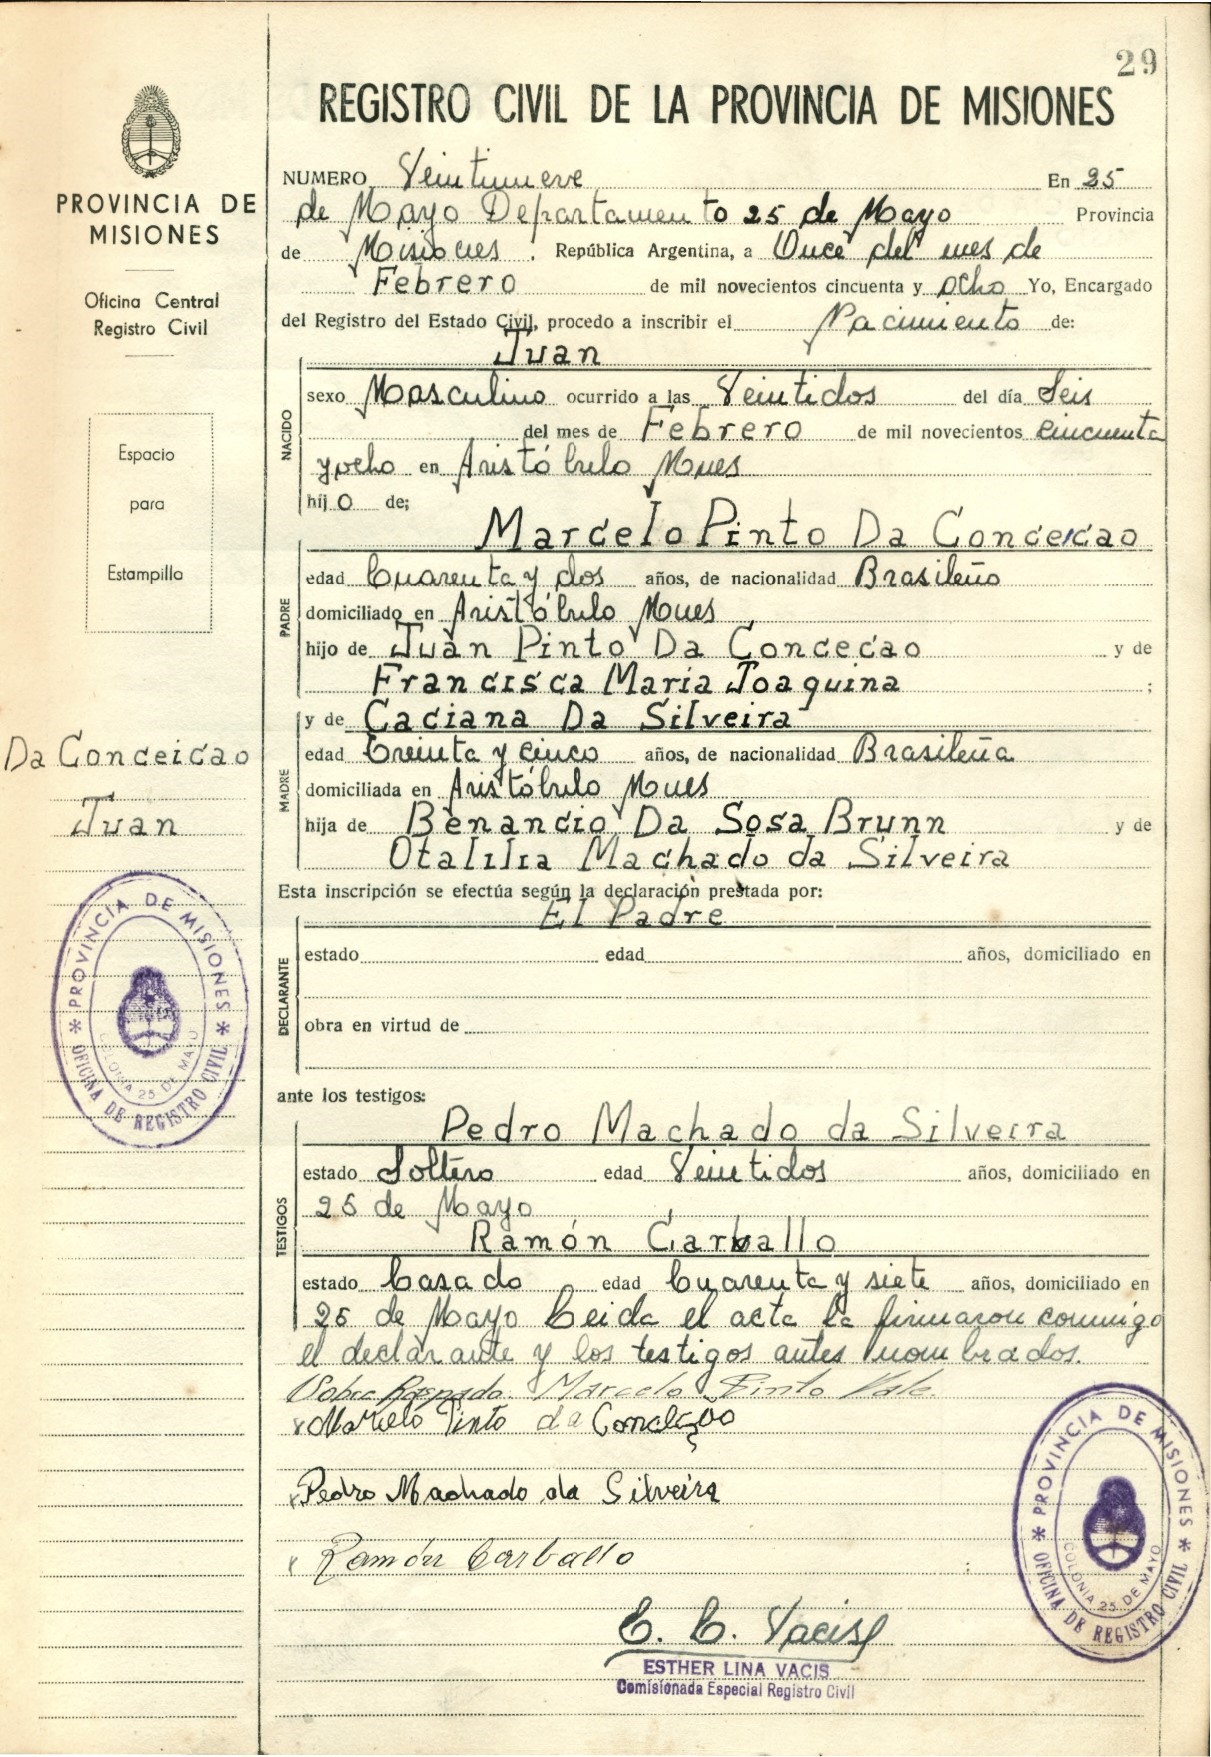 29
REGISTRO CIVIL DE LA PROVINCIA DE MISIONES
PROVINCIA DE
MISIONES
Oficina Central
Registro Civil
Espacio
para
Estampilla
Da Conceicao
Juan
PROVINCIA DE MISIONES
COLONIA 25 DE MAYO
* OFICINA DE REGISTRO CIVIL *
NUMERO Veintinueve En 25
de Mayo Departamento 25 de Mayo Provincia
de Misiones . República Argentina, a Once del mes de
Febrero de mil novecientos cincuenta y ocho Yo, Encargado
del Registro del Estado Civil, procedo a inscribir el Nacimiento de:
Juan
NACIDO
sexo Masculino ocurrido a las Veintidos del día Seis
del mes de Febrero de mil novecientos cincuenta
y ocho en Aristóbulo Mues
hij o de;
Marcelo Pinto Da Conceicao
PADRE
edad Cuarenta y dos años, de nacionalidad Brasileño
domiciliado en Aristóbulo Mues
hijo de Juan Pinto Da Concecao y de
Francisca Maria Joaquina ;
y de Caciana Da Silveira
MADRE
edad Treinta y cinco años, de nacionalidad Brasileña
domiciliada en Aristóbulo Mues
hija de Benancio Da Sosa Brunn y de
Otalilia Machado da Silveira
Esta inscripción se efectúa según la declaración prestada por:
El Padre
DECLARANTE
estado edad años, domiciliado en
obra en virtud de
ante los testigos:
Pedro Machado da Silveira
TESTIGOS
estado Soltero edad Veintidos años, domiciliado en
25 de Mayo
Ramón Carballo
estado Casado edad Cuarenta y siete años, domiciliado en
25 de Mayo Leida el acta la firmaron conmigo
el declarante y los testigos antes nombrados.
Sobre Raspado. Marcelo Pinto Vale
x Marcelo Pinto da Conceição
x Pedro Machado da Silveira
x Ramón Carballo
PROVINCIA DE MISIONES
COLONIA 25 DE MAYO
* OFICINA DE REGISTRO CIVIL *
ESTHER LINA VACIS
Comisionada Especial Registro Civil